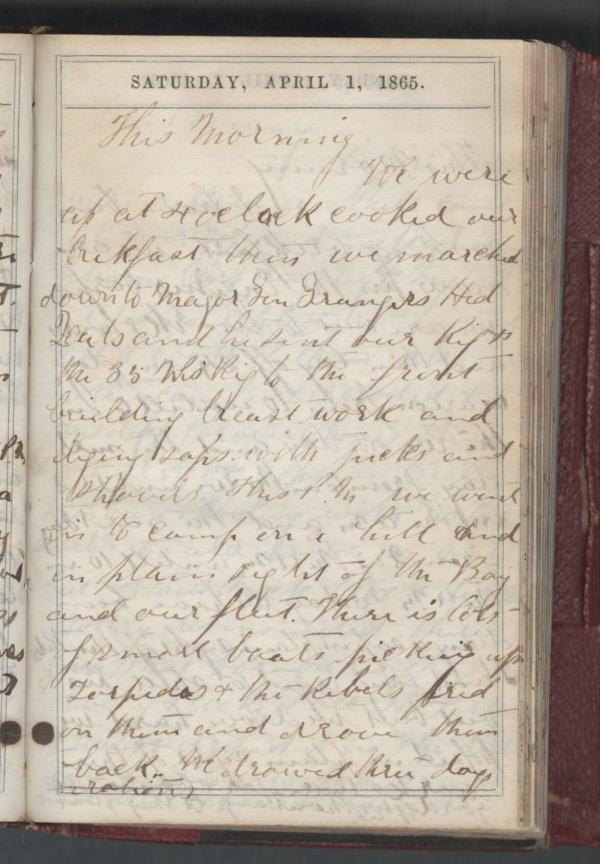 SATURDAY, APRIL 1, 1865.
This Morning
We were
up at 4 oclock cooked our
brekfast then we marched
down to Magor Gen Grangers Hed
and he sent our Rigt &
the 33 Wis Rig to the front
building breast work and
diging saps with picks and
shovels. This P.M. we went
in to camp on a hill and
in plain sight of the Bay
and our fleet. There is lots
of small boats picking up
Torpedos & the Rebels fired
on them and drove them
back. We drawed three days
rations